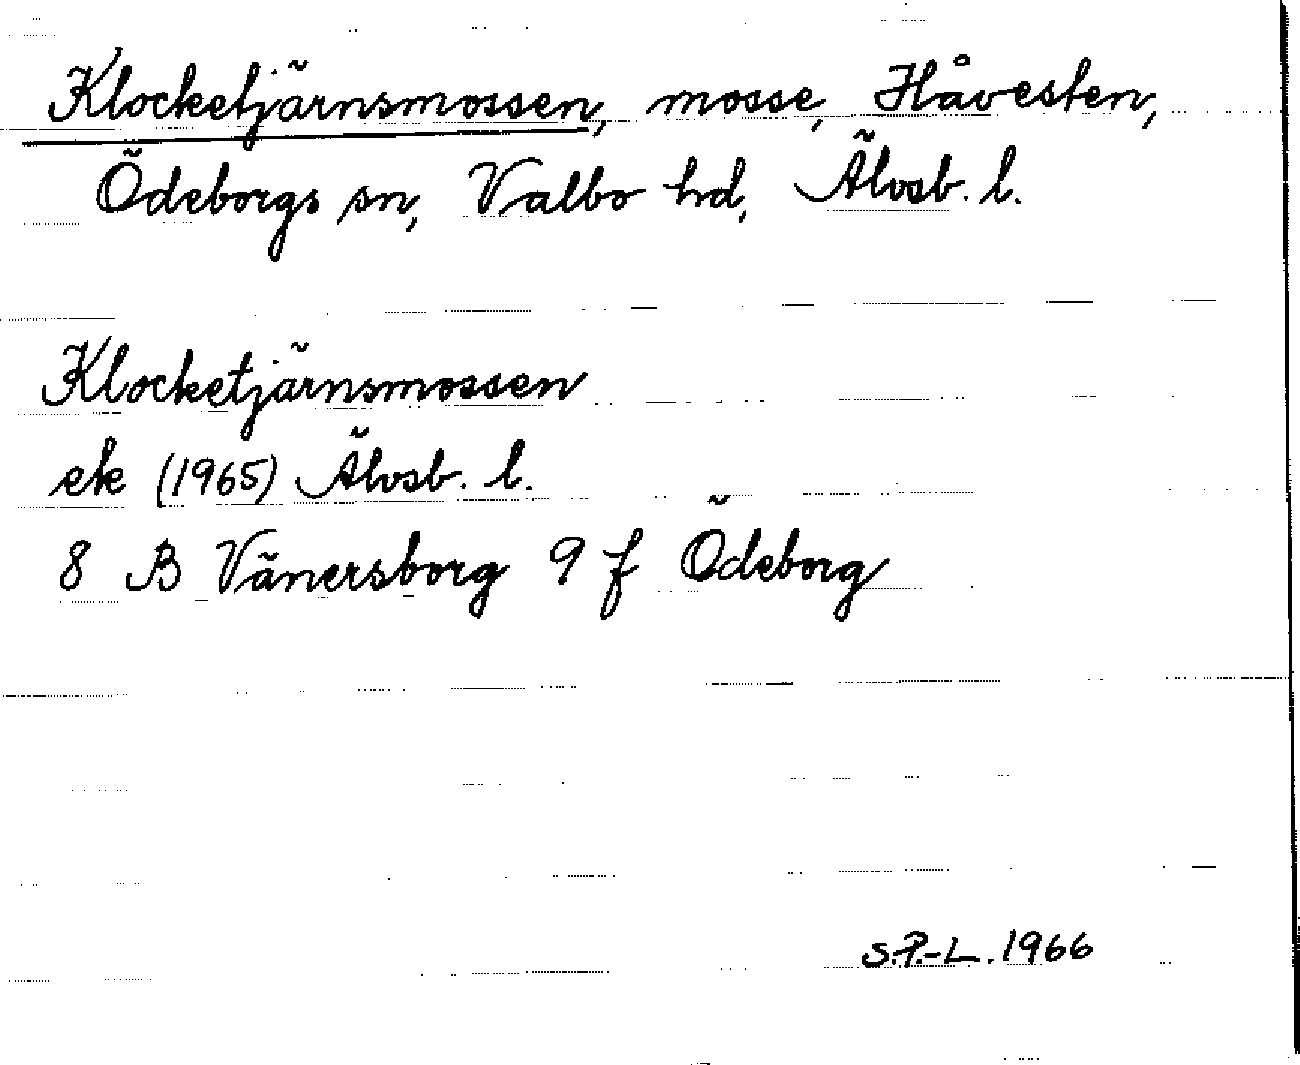 Klocketjärnsmossen, mosse, Håvesten,
Ödeborgs sn, Valbo hd, Älvsb. l.
Klocketjärnsmossen
ek (1965) Älvsb. l.
8 B Vänersborg 9 f Ödeborg
S.P.-L. 1966